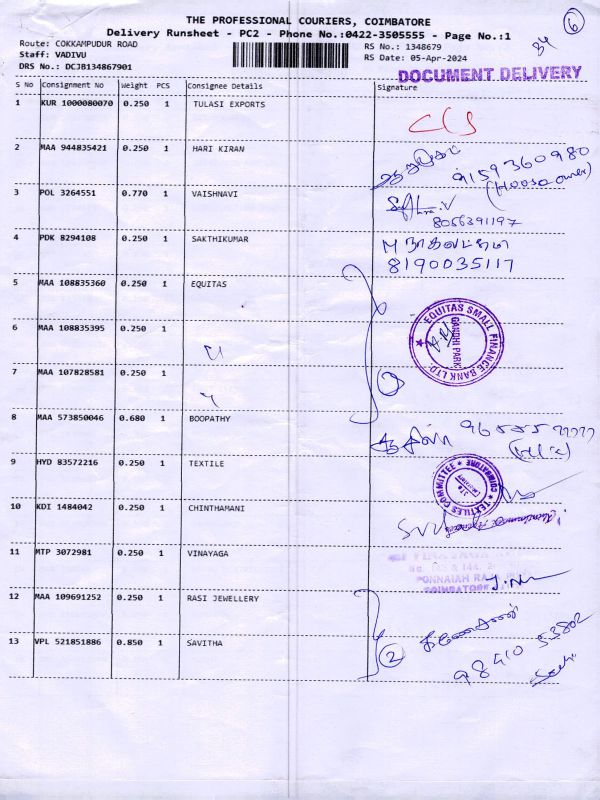 THE PROFESSIONAL COURIERS, COIMBATORE
Delivery Runsheet - PC2 - Phone No.:0422-3505555 - Page No.:1
6
34
Route: COKKAMPUDUR ROAD
RS No.: 1348679
Staff: VADIVU
RS Date: 05-Apr-2024
DRS No.: DCJB134867901
DOCUMENT DELIVERY
S No Consignment No Weight PCS Consignee Details Signature
1 KUR 1000080070 0.250 1 TULASI EXPORTS
2 MAA 944835421 0.250 1 HARI KIRAN
9159360980
3 POL 3264551 0.770 1 VAISHNAVI
8056391197
4 PDK 8294108 0.250 1 SAKTHIKUMAR
8190035117
5 MAA 108835360 0.250 1 EQUITAS
EQUITAS SMALL FINANCE BANK LTD.
GANDHI PARK
6 MAA 108835395 0.250 1
7 MAA 107828581 0.250 1
8 MAA 573850046 0.680 1 BOOPATHY
9 HYD 83572216 0.250 1 TEXTILE
TEXTILES COMMITTEE
COIMBATORE
10 KDI 1484042 0.250 1 CHINTHAMANI
11 MTP 3072981 0.250 1 VINAYAGA
12 MAA 109691252 0.250 1 RASI JEWELLERY
13 VPL 521851886 0.850 1 SAVITHA
2
98410 53802